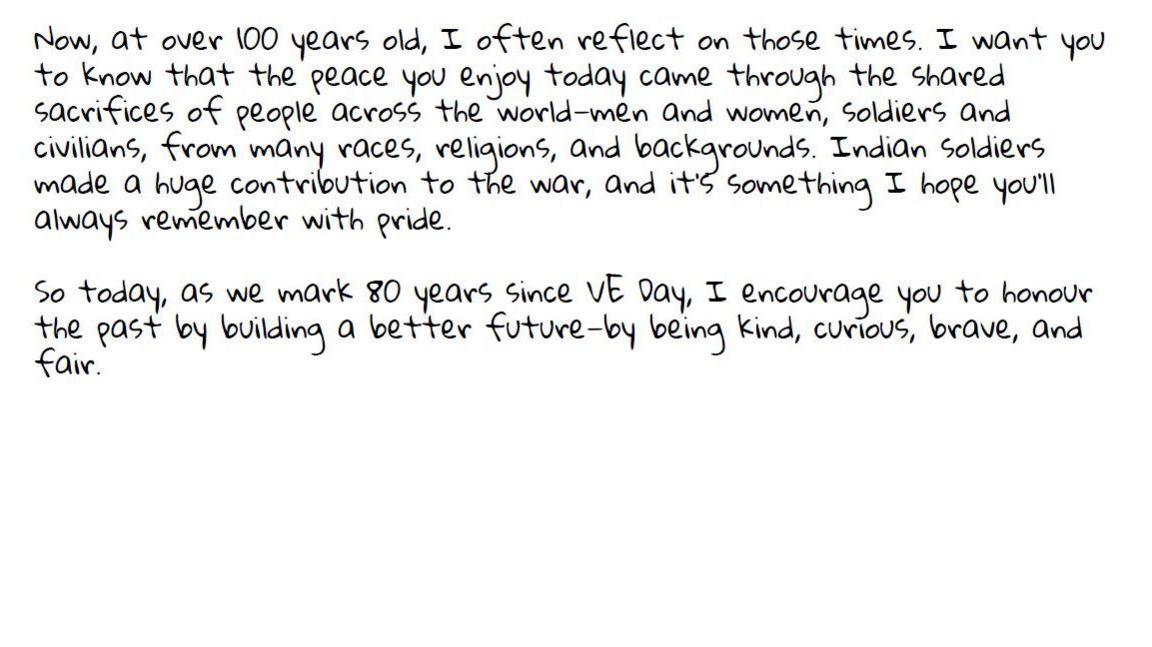 Now, at over 100 years old, I often reflect on those times. I want you
to know that the peace you enjoy today came through the shared
sacrifices of people across the world-men and women, soldiers and
civilians, from many races, religions, and backgrounds. Indian soldiers
made a huge contribution to the war, and it's something I hope you'll
always remember with pride.
So today, as we mark 80 years since VE Day, I encourage you to honour
the past by building a better future-by being kind, curious, brave, and
fair.